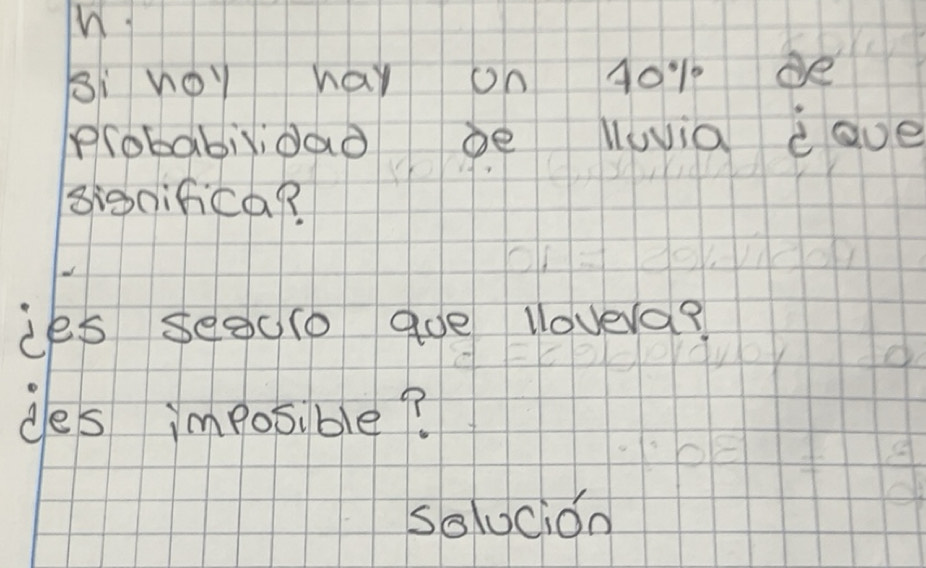 n.
si hoy hay un 40% de
probabilidad de lluvia ¿que
significa?
¿es seguro que llovera?
¿es imposible?
solución